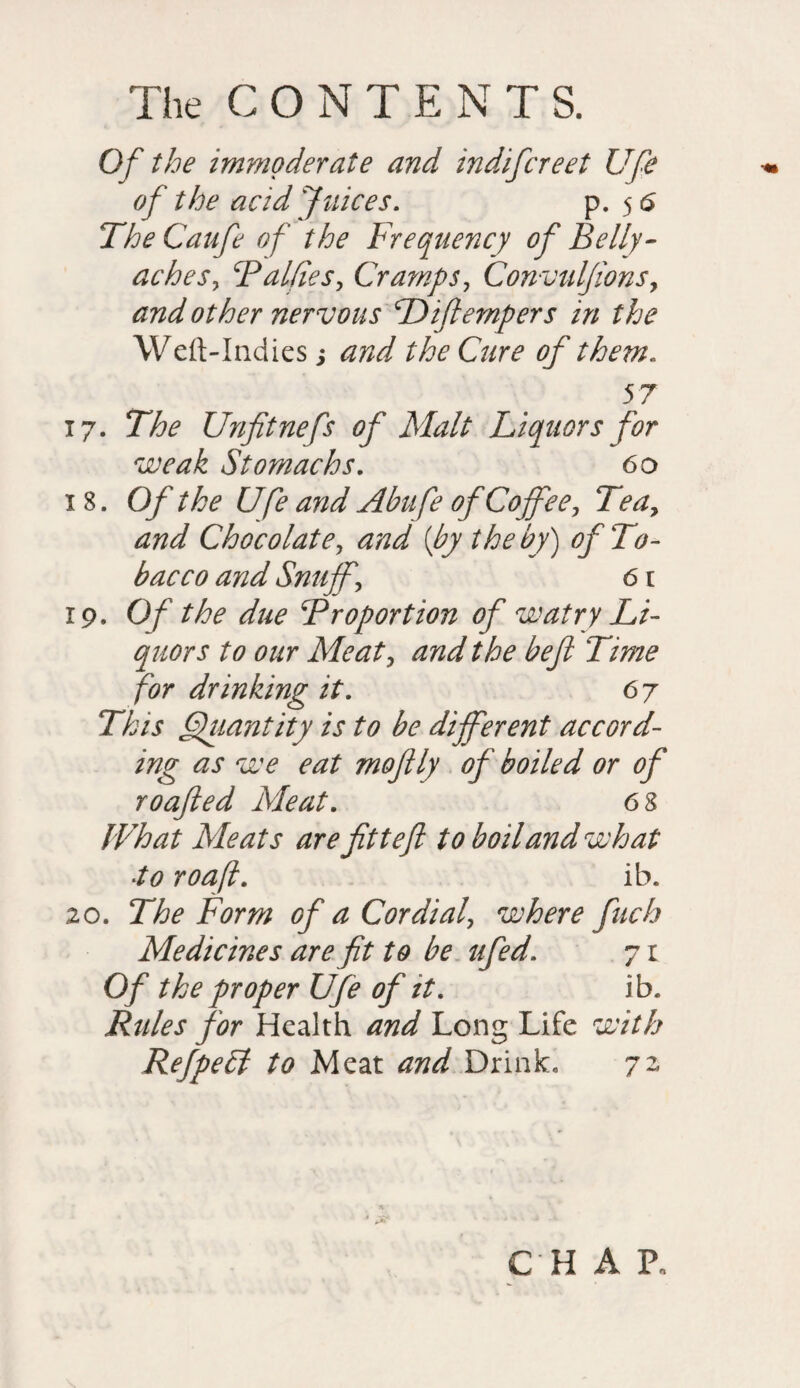 The CONTENTS.
Of the immoderate and indiſcreet Uſe
of the acid Juices. p. 56
The Cauſe of the Frequency of Belly-
aches, Palſies, Cramps, Convulſions,
and other nervous Diſtempers in the
Weſt-Indies; and the Cure of them.
57
17. The Unfitneſs of Malt Liquors for
weak Stomachs. 60
18. Of the Uſe and Abuſe of Coffee, Tea,
and Chocolate, and (by the by) of To-
bacco and Snuff, 61
19. Of the due Proportion of watry Li-
quors to our Meat, and the beſt Time
for drinking it. 67
This Quantity is to be different accord-
ing as we eat moſtly of boiled or of
roaſted Meat. 68
What Meats are fitteſt to boil and what
to roaſt. ib.
20. The Form of a Cordial, where ſuch
Medicines are fit to be uſed. 71
Of the proper Uſe of it. ib.
Rules for Health and Long Life with
Reſpect to Meat and Drink. 72
CHAP.